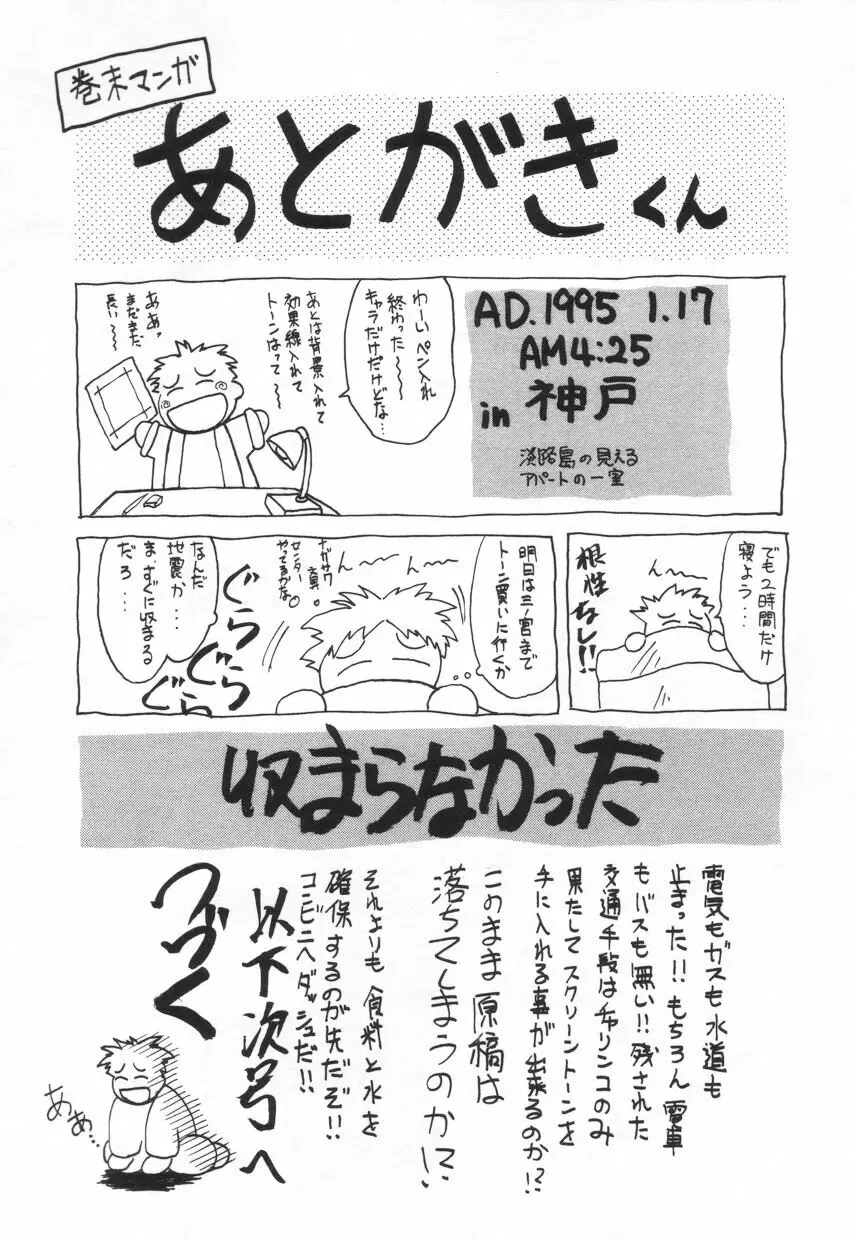 巻末マンガ
あとがきくん
AD.1995 1.17
AM4:25
in 神戸
淡路島の見える
アパートの一室
わーいペン入れ
終わった〜〜
キャラだけだけどな…
あとは背景入れて
効果線入れて
トーンはって〜〜
ああっ
まだまだ
長い〜〜
でも2時間だけ
寝よう・・・
ん〜〜
根性なし!!
明日は三ノ宮まで
トーン買いに行くか
ん〜〜
ん〜〜
ナガサワ
センター
やってるかな
ぐらぐらぐら
なんだ
地震か・・・
ま、すぐに収まる
だろ・・・
収まらなかった
電気もガスも水道も
止まった!!もちろん電車
もバスも無い!!残された
交通手段はチャリンコのみ
果たしてスクリーントーンを
手に入れる事が出来るのか!?
このまま原稿は
落ちてしまうのか!?
それよりも食料と水を
確保するのが先だぞ!!
コンビニへダッシュだ!!
以下次号へ
つづく
ああ…